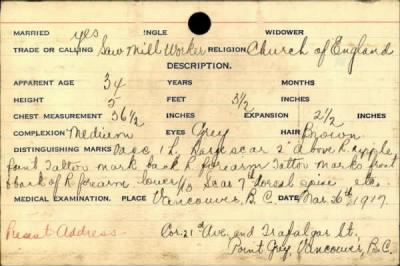 MARRIED yes SINGLE WIDOWER
TRADE OR CALLING Saw Mill Worker RELIGION Church of England
DESCRIPTION.
APPARENT AGE 34 YEARS MONTHS
HEIGHT 5 FEET 3½ INCHES
CHEST MEASUREMENT 36½ INCHES EXPANSION 2½ INCHES
COMPLEXION Medium EYES Grey HAIR Brown
DISTINGUISHING MARKS Vacc 1 L. Large scar 2" above R. nipple
faint Tattoo mark back R forearm Tattoo marks front
& back of R. forearm lower ⅓ Scar 7th dorsal spine etc.
MEDICAL EXAMINATION. PLACE Vancouver, B.C. DATE Mar. 26th 1917
Present Address - Cor. 21st Ave. and Trafalgar St.
Point Grey, Vancouver, B.C.